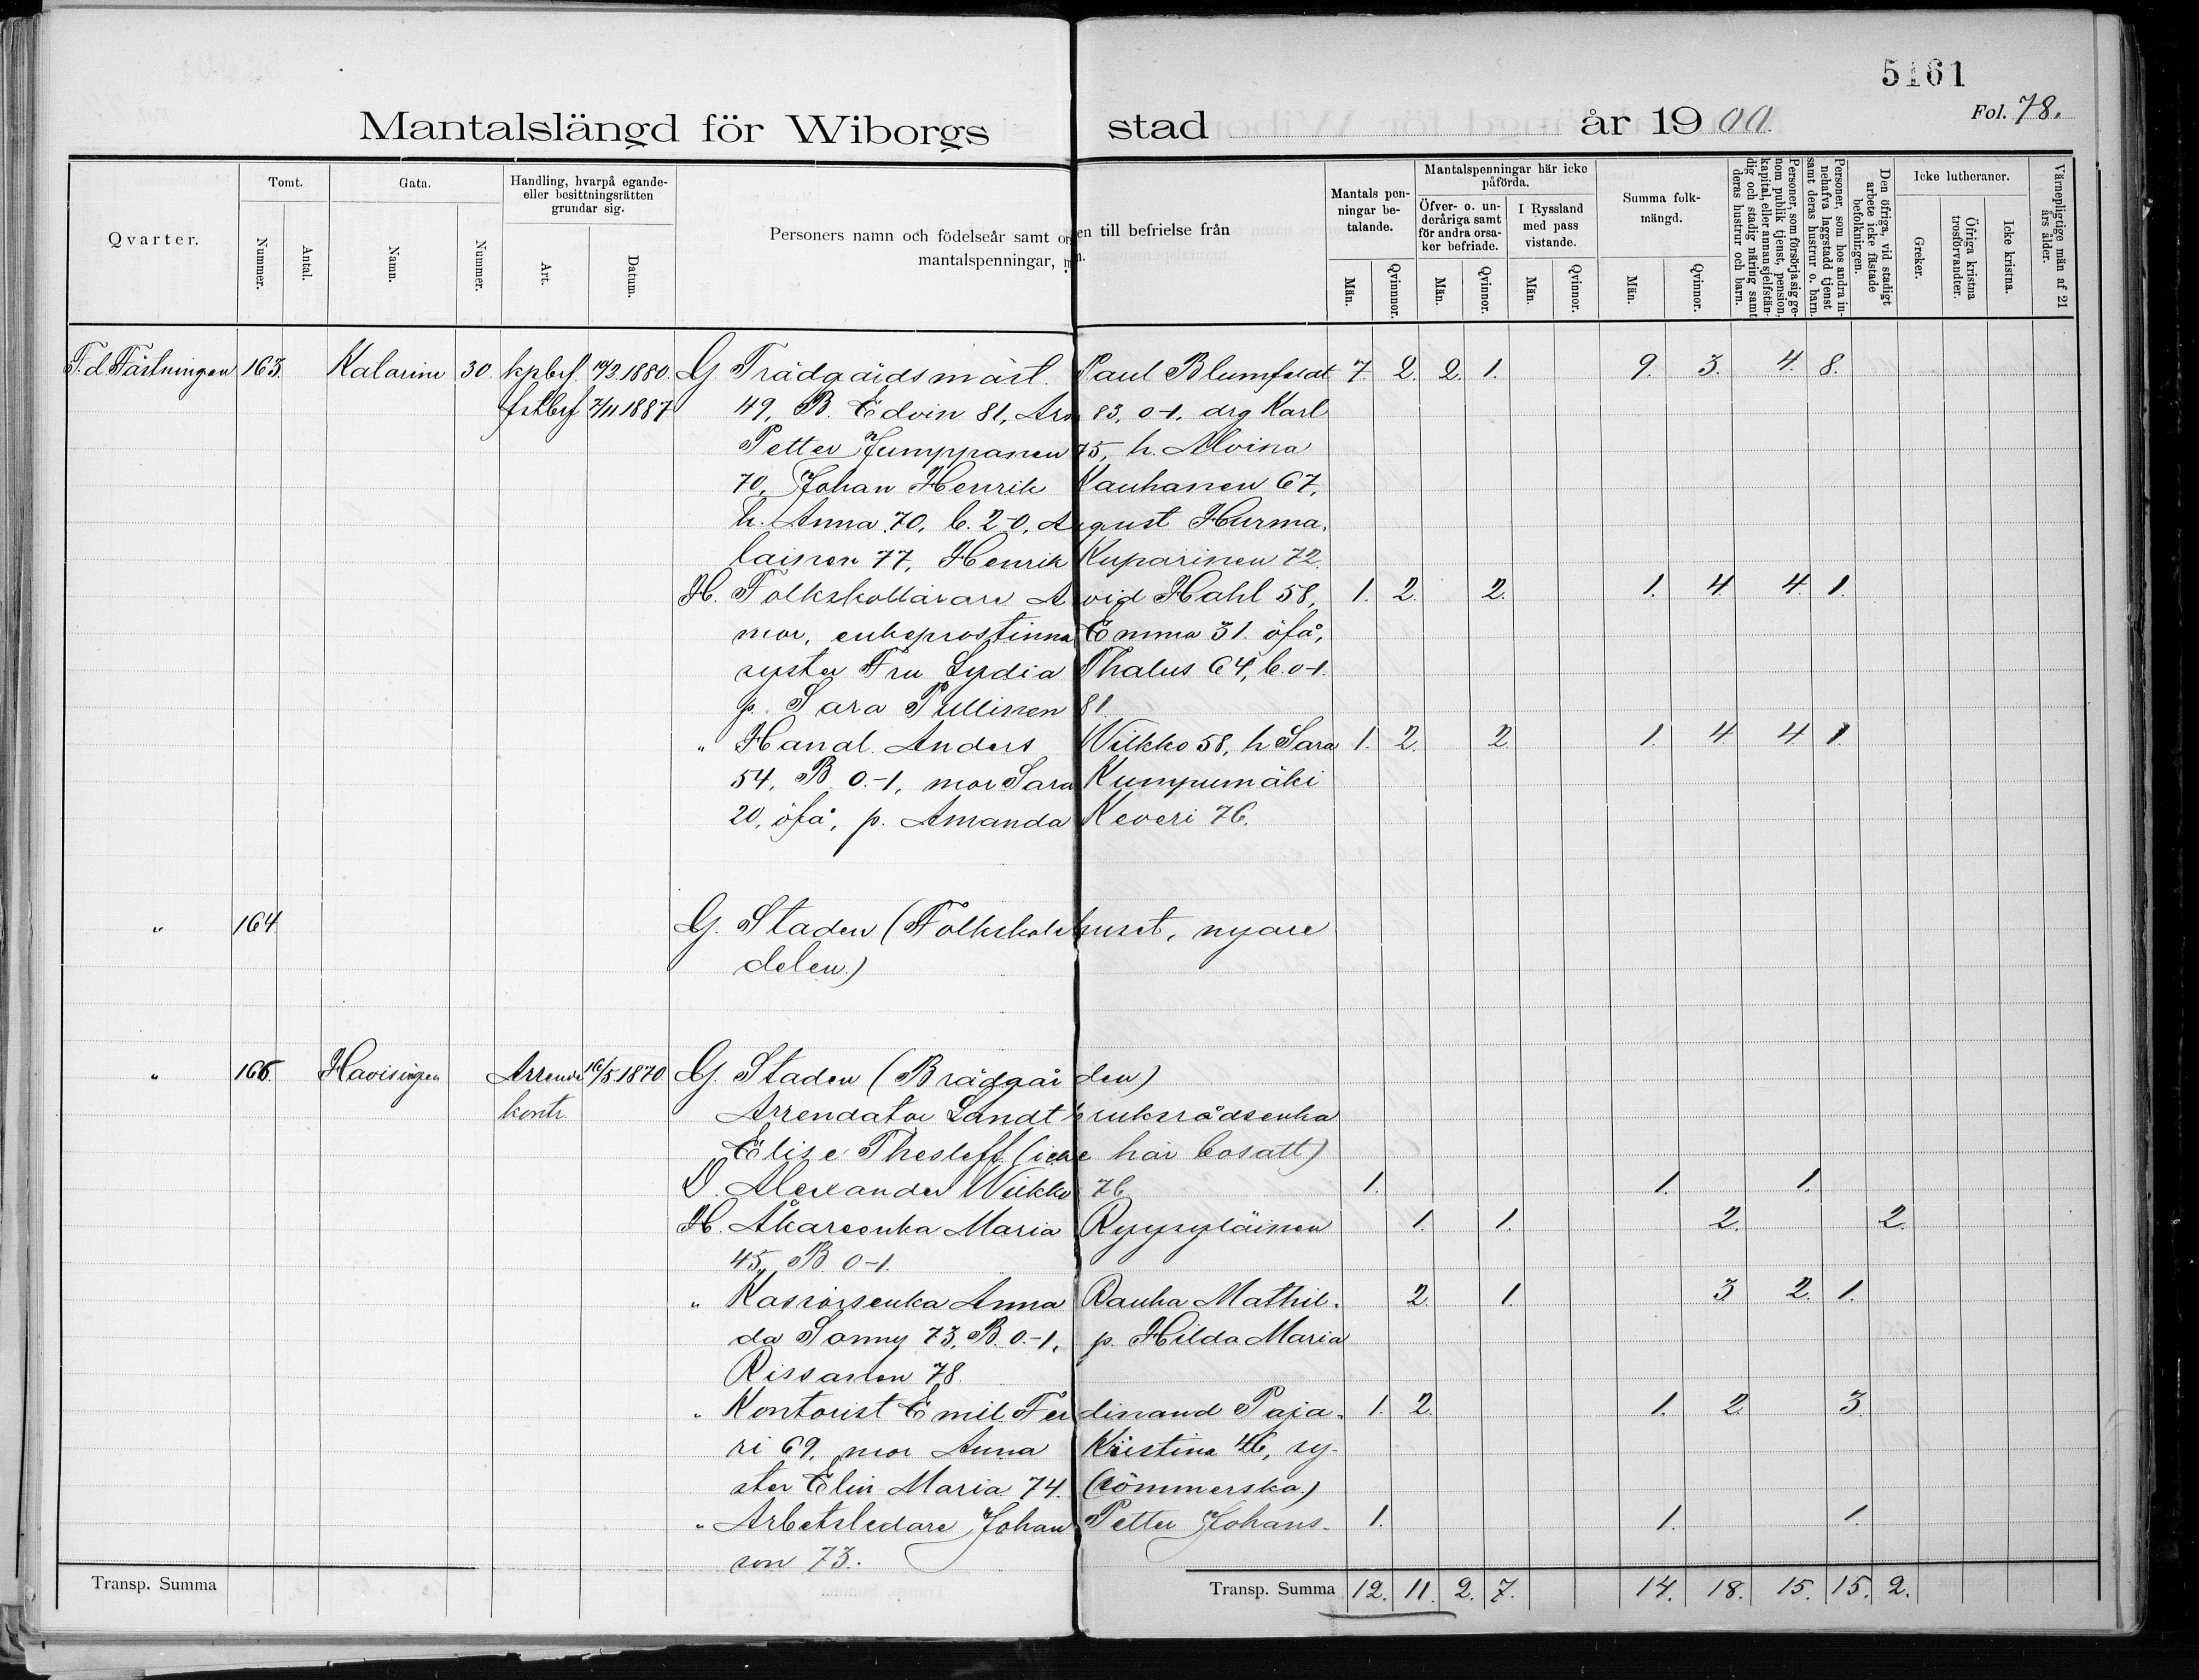 5161
Mantalslängd för Wiborgs stad år 1900. Fol. 78.
Qvarter.
Tomt.
Nummer.
Antal.
Gata.
Namn.
Nummer.
Handling, hvarpå egande- eller besittningsrätten grundar sig.
Art.
Datum.
Personers namn och födelseår samt en till befrielse från
mantalspenningar,
Mantalspenningar betalande.
Män.
Qvinnor.
Mantalspenningar här icke påförda.
Öfver- o. underåriga samt för andra orsaker befriade.
Män.
Qvinnor.
I Ryssland med pass vistande.
Män.
Qvinnor.
Summa folkmängd.
Män.
Qvinnor.
Personer, som försörja sig genom publik tjenst, pension, kapital, eller annan sjelfständig och stadig näring samt deras hustrur och barn.
Personer, som hos andra innehafva laggstadd tjenst samt deras hustrur o. barn.
Den öfriga, vid stadigt arbete icke fästade befolkningen.
Icke lutheraner.
Greker.
Öfriga kristna trosförvandter.
Icke kristna.
Värnepligtige män af 21 års ålder.
F. d. Fästningen 163. Katarine 30. kpbrf. 19/3 1880. G. Trädgårdsmäst. Paul Blumfeldt 7. 2. 2. 1. 9. 3. 4. 8.
fstbrf 7/11 1887 49, B. Edvin 81, 83, 0-1, drg Karl
Petter Jumppanen 75, h. Alvina
70, Johan Henrik Kauhanen 67,
h. Anna 70, b. 2-0, August Hurma-
lainen 77, Henrik Kuparinen 72.
H. Folkskollärare Arvid Hahl 58, 1. 2. 2. 1. 4 4. 1.
mor, enkeprostinna Emma 31. öfå,
syster Fru Lydia Thalus 64, b. 0-1.
p. Sara Pullinen 81.
" Handl. Anders Wilkko 58, h Sara 1. 2. 2. 1. 4. 4 1.
54, B. 0-1, mor Sara Kumpumäki
20, öfå, p. Amanda Keveri 76.
" 164 G. Staden (Folkskolehuset, nyare
delen.)
" 166. Havisingen Arrende 16/5 1870 G. Staden (Brädgården)
kontr. Arrendator Landtbruksrådsenka
Elise Thesleff (icke här bosatt)
D. Alexander Wilkko 76 1. 1. 1.
H. Åkareenka Maria Ryyryläinen 1. 1. 2. 2.
45, B 0-1.
" Kassörsenka Anna Rauha Mathil- 2. 1. 3 2. 1.
da Sonny 73, B. 0-1, p. Hilda Maria
Rissanen 78.
" Kontorist Emil Ferdinand Paja- 1. 2. 1. 2. 3.
ri 69, mor Anna Kristina 46, sy-
ster Elin Maria 74. (sömmerska)
" Arbetsledare Johan Petter Johans- 1. 1. 1.
son 73.
Transp. Summa Transp. Summa 12. 11. 2. 7. 14. 18. 15. 15. 2.